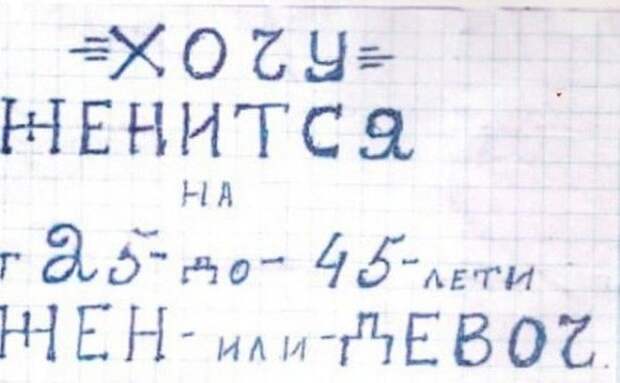 =ХОЧУ=
ЖЕНИТСЯ
НА
т 25-до-45-лети
ЖЕН-или-ДЕВОЧ.